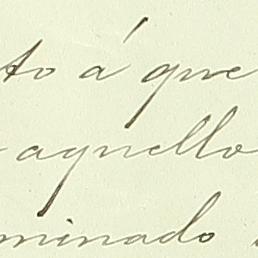 to á que
aquello
minado